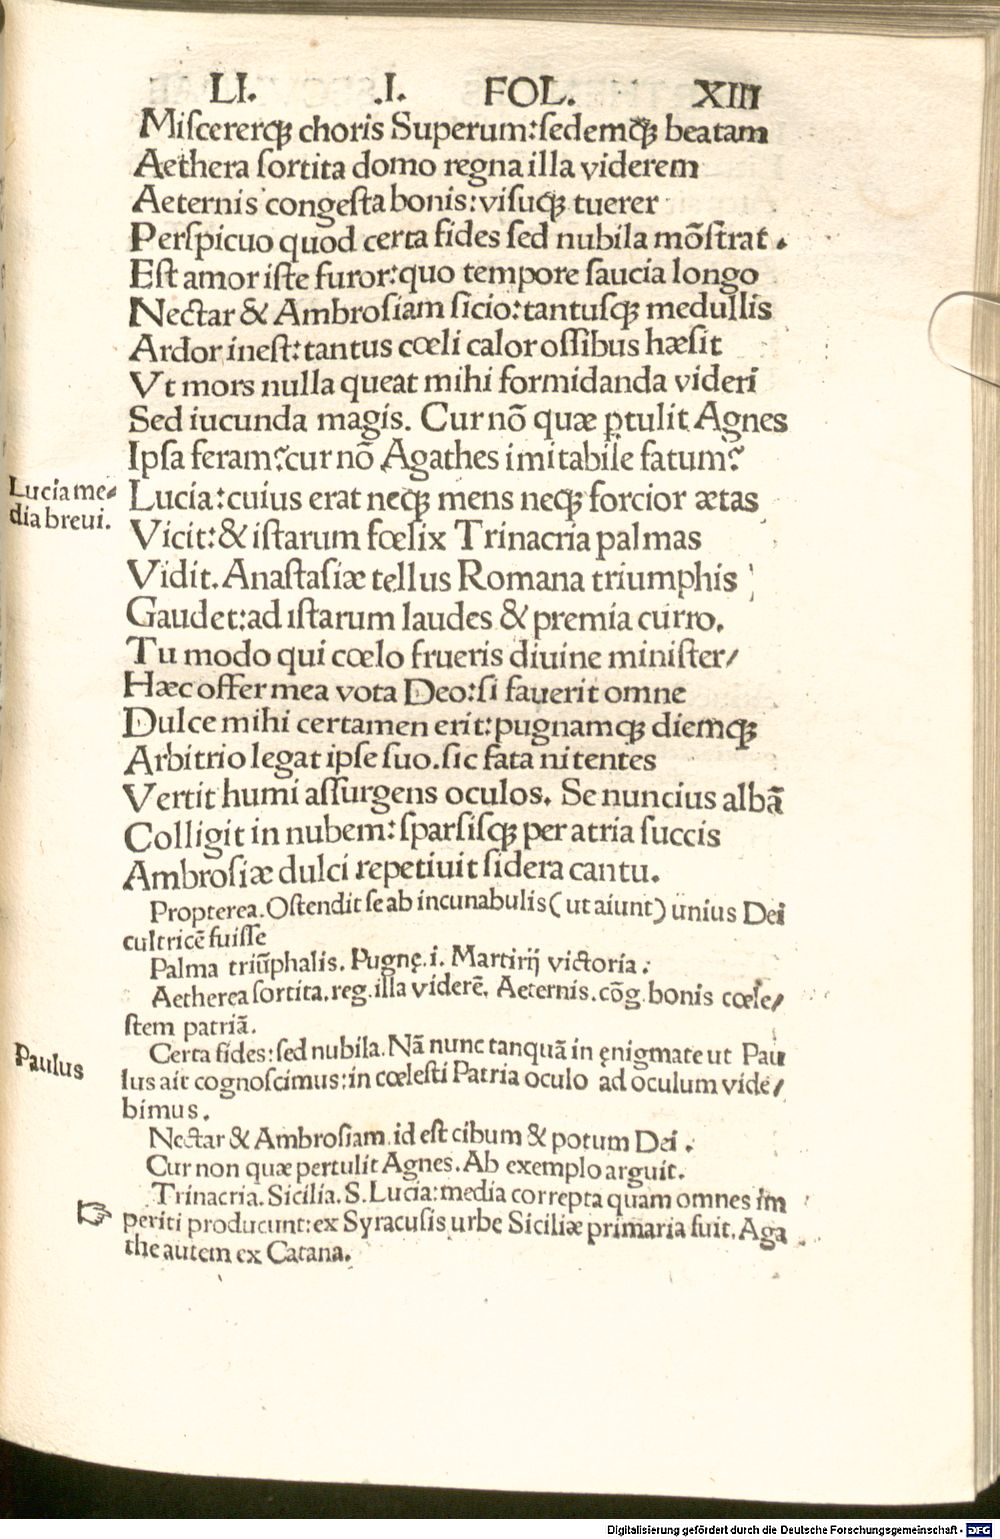 LI. .I. FOL. XIII
Miſcererq́; choris Superum:ſedemq́; beatam
Aethera ſortita domo regna illa viderem
Aeternis congeſta bonis:viſuq́; tuerer
Perſpicuo quod certa fides ſed nubila mõſtrat.
Eſt amor iſte furor:quo tempore ſaucia longo
Nectar & Ambroſiam ſicio:tantuſq́; medullis
Ardor ineſt:tantus cœli calor oſſibus hæſit
Vt mors nulla queat mihi formidanda videri
Sed iucunda magis. Cur nõ quæ ꝑtulit Agnes
Ipſa feram?cur nõ Agathes imitabile fatum?
Lucia me⸗
dia breui.
Lucia:cuius erat neq́; mens neq́; forcior ætas
Vicit:& iſtarum fœlix Trinacria palmas
Vidit. Anaſtaſiæ tellus Romana triumphis
Gaudet:ad iſtarum laudes & premia curro.
Tu modo qui cœlo frueris diuine miniſter/
Hæc offer mea vota Deo:ſi fauerit omne
Dulce mihi certamen erit:pugnamq́; diemq́;
Arbitrio legat ipſe ſuo.ſic fata nitentes
Vertit humi aſſurgens oculos. Se nuncius albã
Colligit in nubem:ſparſiſq́; per atria ſuccis
Ambroſiæ dulci repetiuit ſidera cantu.
Propterea.Oſtendit ſe ab incunabulis(ut aiunt) unius Dei
cultricẽ fuiſſe
Palma triũphalis. Pugnę.i. Martirij victoria.
Aetherea ſortita.reg.illa viderẽ. Aeternis.cõg.bonis cœle/
ſtem patriã.
Paulus
Certa fides:ſed nubila.Nã nunc tanquã in ęnigmate ut Pau
lus ait cognoſcimus:in cœleſti Patria oculo ad oculum vide/
bimus.
Nectar & Ambroſiam.id eſt cibum & potum Dei.
Cur non quæ pertulit Agnes. Ab exemplo arguit.
Trinacria. Sicilia. S. Lucia:media correpta quam omnes im
periti producunt:ex Syracuſis urbe Siciliæ primaria fuit. Aga
the autem ex Catana.
Digitalisierung gefördert durch die Deutsche Forschungsgemeinschaft - DFG